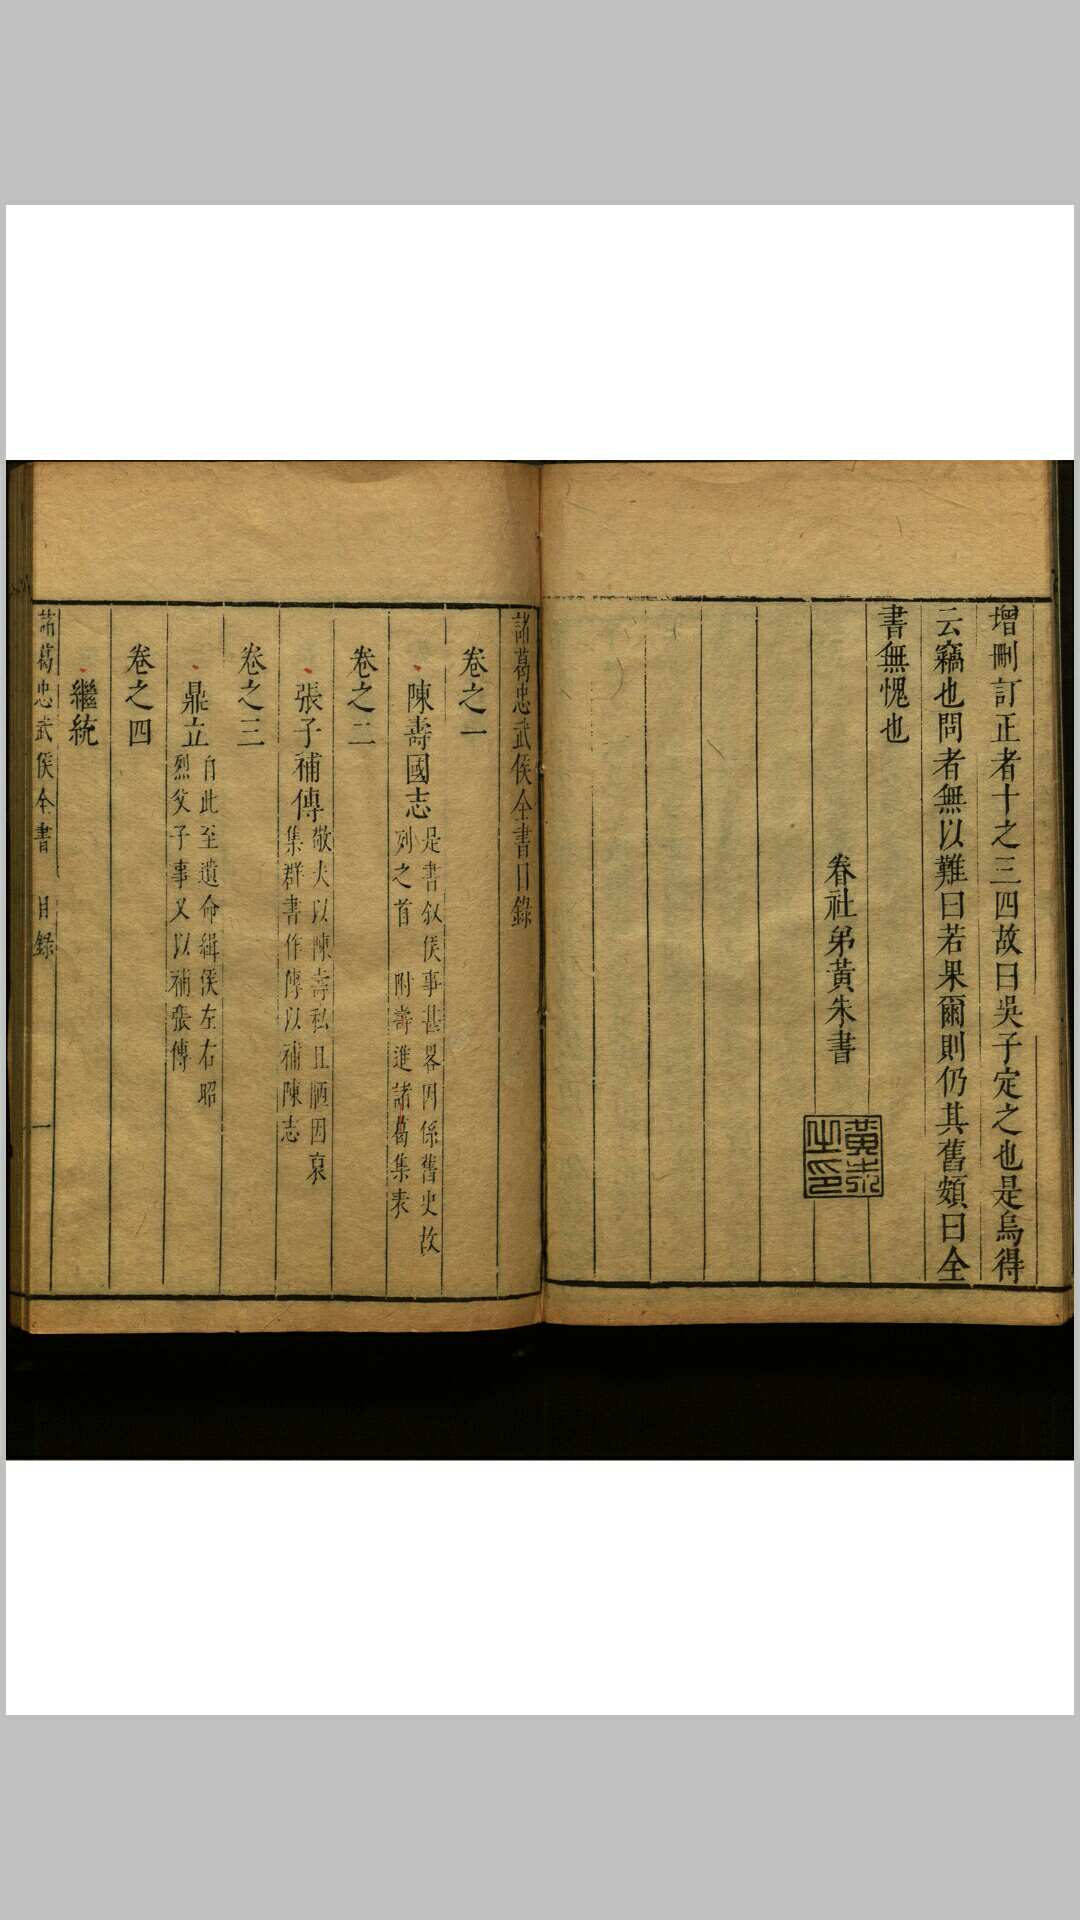 增刪訂正者十之三四故曰吳子定之也是烏得
云竊也問者無以難曰若果爾則仍其舊頗曰全
書無愧也
春社弟黃朱書
黃朱之印
諸葛忠武侯全書目錄
卷之一
陳壽國志
是書敘侯事甚畧因係舊史故
列之首 附壽進諸葛集表
卷之二
張子補傳
敬夫以陳壽私且陋因裒
集群書作傳以補陳志
卷之三
鼎立
自此至遺命緝侯左右昭
烈父子事又以補張傳
卷之四
繼統
諸葛忠武侯全書 目錄 一